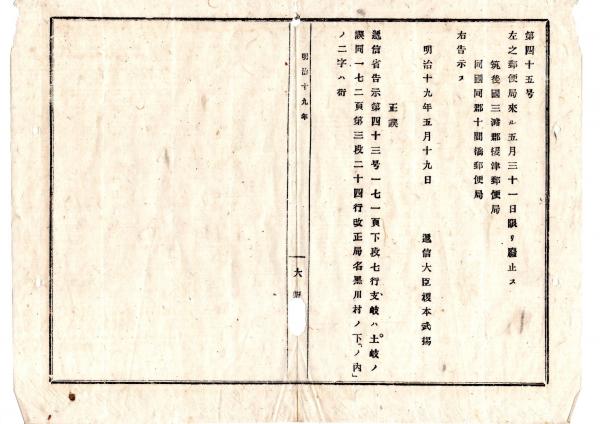 第四十五号
左之郵便局來ル五月三十一日限リ廢止ス
筑後國三潴郡榎津郵便局
同國同郡十間橋郵便局
右告示ス
明治十九年五月十九日
遞信大臣榎本武揚
正誤
遞信省告示第四十三号一七一頁下段七行支岐ハ土岐ノ
誤同一七二頁第三段二十四行改正局名黒川村ノ下「ノ内」
ノ二字ハ衍
明治十九年
大